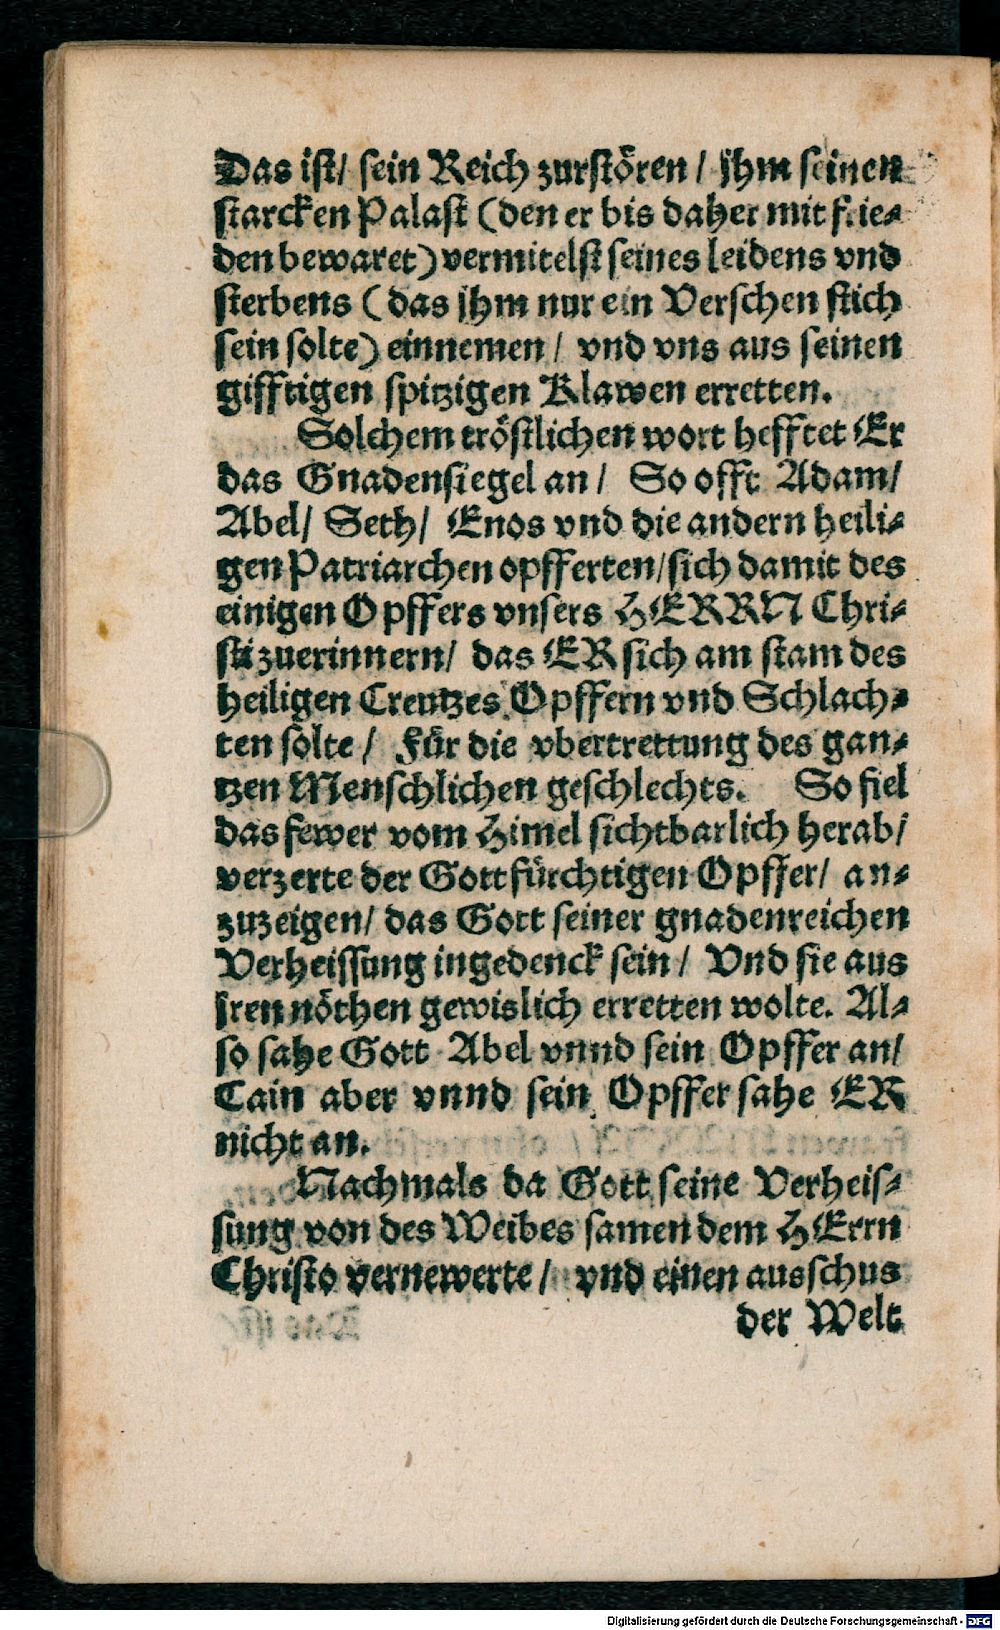 Das ist/ sein Reich zurstören/ jhm seinen
starcken Palast (den er bis daher mit frie-
den bewaret) vermitelst seines leidens vnd
sterbens (das jhm nur ein Verschen stich
sein solte) einnemen/ vnd vns aus seinen
gifftigen spitzigen Klawen erretten.
Solchem tröstlichen wort hefftet Er
das Gnadensiegel an/ So offt Adam/
Abel/ Seth/ Enos vnd die andern heili-
gen Patriarchen opfferten/ sich damit des
einigen Opffers vnsers HERRN Chri-
sti zuerinnern/ das ER sich am stam des
heiligen Creutzes Opffern vnd Schlach-
ten solte/ Für die vbertrettung des gan-
tzen Menschlichen geschlechts. So fiel
das fewer vom Himel sichtbarlich herab/
verzerte der Gottfürchtigen Opffer/ an-
zuzeigen/ das Gott seiner gnadenreichen
Verheissung ingedenck sein/ Vnd sie aus
jren nöthen gewislich erretten wolte. Al-
so sahe Gott Abel vnnd sein Opffer an/
Cain aber vnnd sein Opffer sahe ER
nicht an.
Nachmals da Gott seine Verheis-
sung von des Weibes samen dem HErrn
Christo vernewerte/ vnd einen ausschus
der Welt
Digitalisierung gefördert durch die Deutsche Forschungsgemeinschaft - DFG